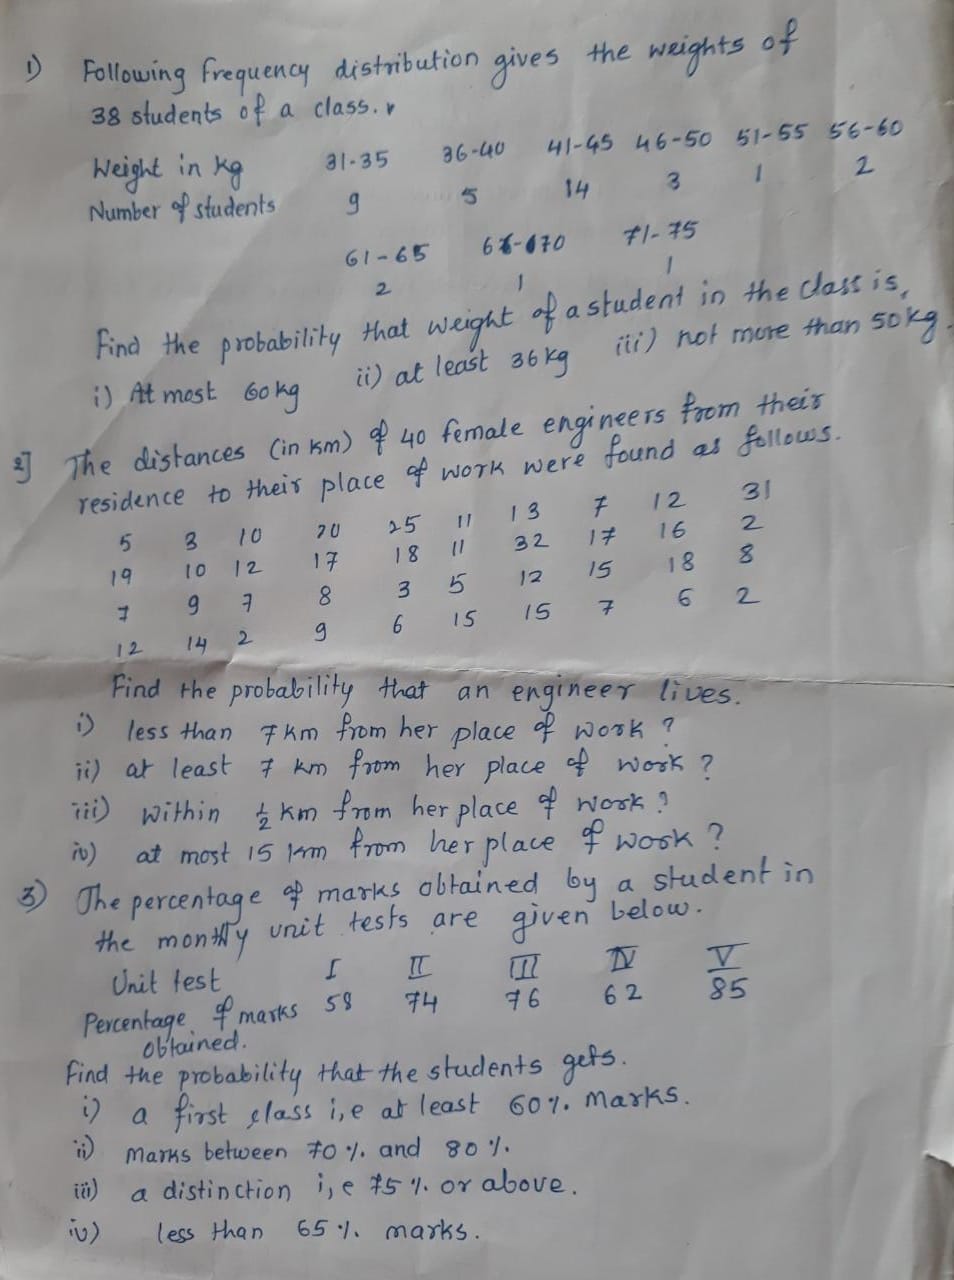 1) Following frequency distribution gives the weights of
38 students of a class.
Weight in kg 31-35 36-40 41-45 46-50 51-55 56-60
Number of students 9 5 14 3 1 2
61-65 66-70 71-75
2 1 1
Find the probability that weight of a student in the class is,
i) At most 60kg ii) at least 36kg iii) not more than 50kg.
2] The distances (in km) of 40 female engineers from their
residence to their place of work were found as follows.
5 3 10 20 25 11 13 7 12 31
19 10 12 17 18 11 32 17 16 2
7 9 7 8 3 5 12 15 18 8
12 14 2 9 6 15 15 7 6 2
Find the probability that an engineer lives.
i) less than 7km from her place of work ?
ii) at least 7 km from her place of work ?
iii) within ½ km from her place of work ?
iv) at most 15 km from her place of work ?
3) The percentage of marks obtained by a student in
the monthly unit tests are given below.
Unit test I II III IV V
Percentage of marks 58 74 76 62 85
obtained.
Find the probability that the students gets.
i) a first class i,e at least 60%. Marks.
ii) Marks between 70%. and 80%.
iii) a distinction i,e 75%. or above.
iv) less than 65%. marks.